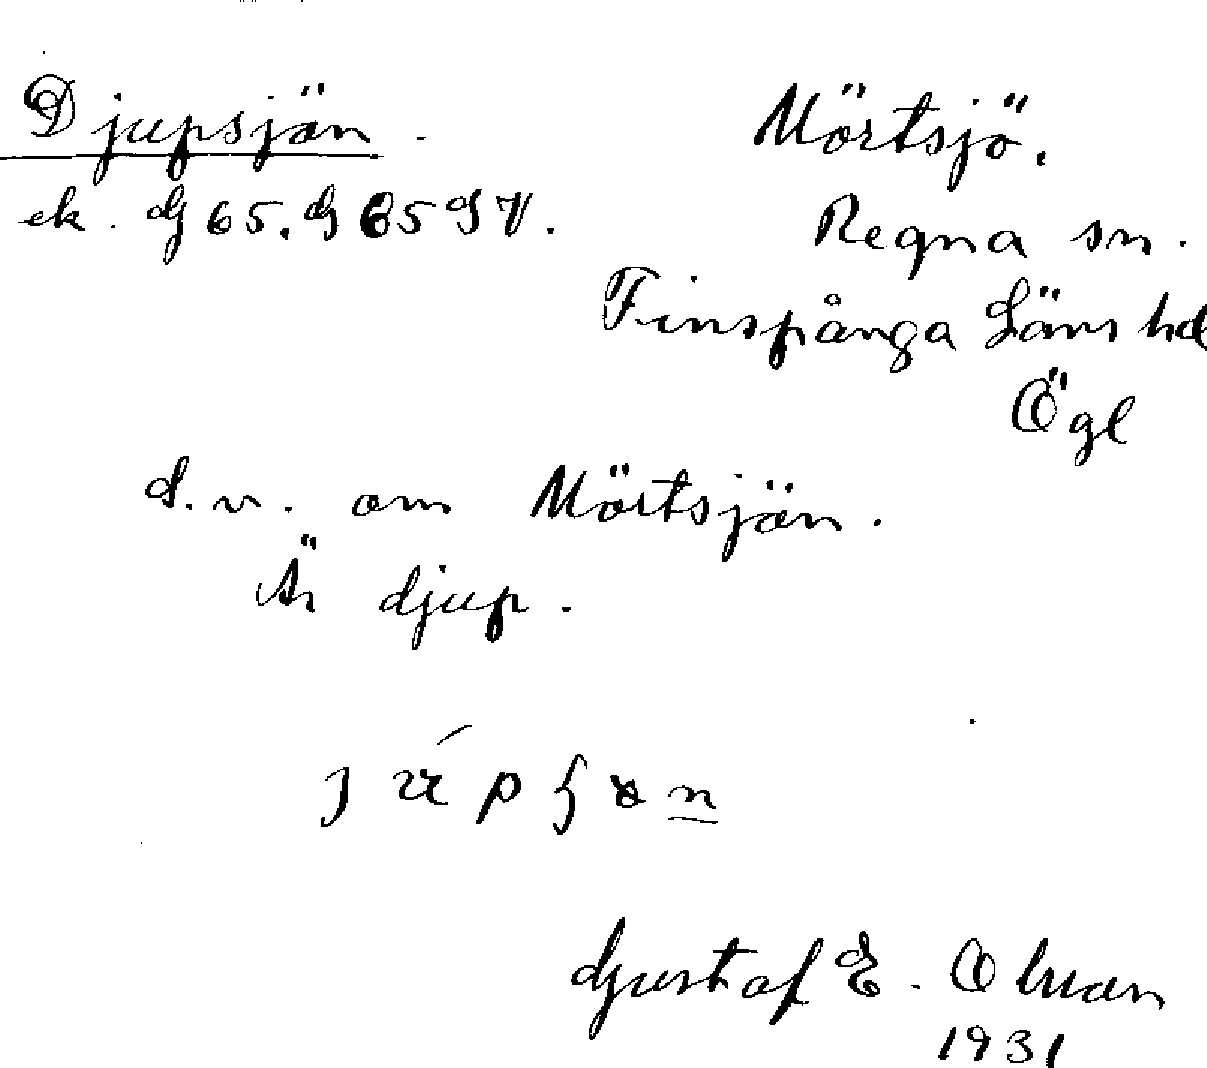 Djupsjön.
Mörtsjö.
ek. G 65. G 65 SV.
Regna sn.
Finspånga Läns hd
Ögl
S. v. om Mörtsjön.
Är djup.
Gustaf E.
1931